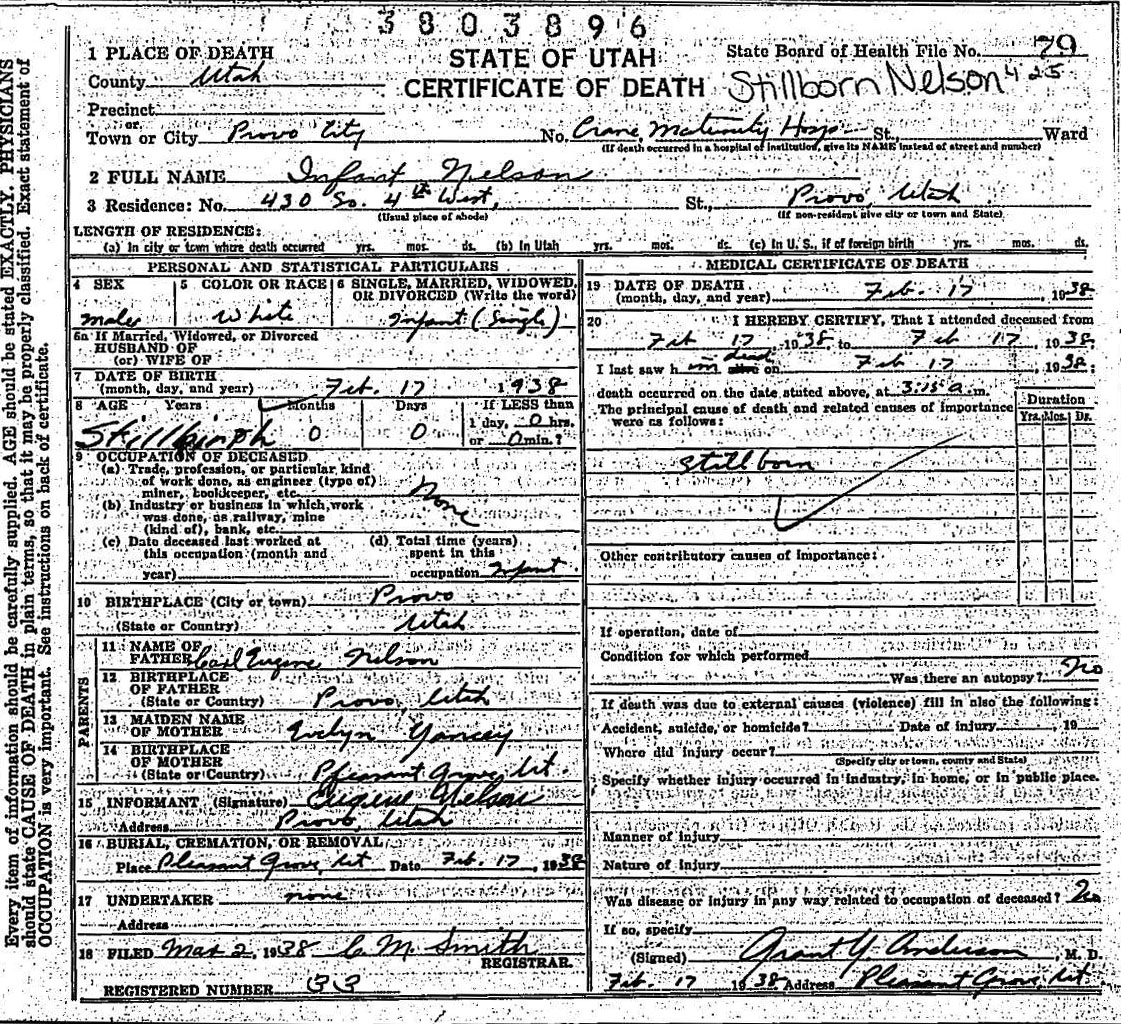 3803896
1 PLACE OF DEATH
STATE OF UTAH
State Board of Health File No. 79
County Utah
CERTIFICATE OF DEATH
Stillborn Nelson 425
Precinct
or
Town or City Provo City No. Crane Maternity Hosp St., Ward
(If death occurred in a hospital or institution, give its NAME instead of street and number)
2 FULL NAME Infant Nelson
3 Residence: No. 430 So. 4th West, St., Provo, Utah
(Usual place of abode) (If non-resident give city or town and State)
LENGTH OF RESIDENCE:
(a) In city or town where death occurred yrs. mos. ds. (b) In Utah yrs. mos. ds. (c) In U. S., if of foreign birth yrs. mos. ds.
PERSONAL AND STATISTICAL PARTICULARS
4 SEX 5 COLOR OR RACE 6 SINGLE, MARRIED, WIDOWED,
OR DIVORCED (Write the word)
Male White Infant (Single)
6a If Married, Widowed, or Divorced
HUSBAND OF
(or) WIFE OF
7 DATE OF BIRTH
(month, day, and year) Feb. 17 1938
8 AGE Years Months Days If LESS than
1 day, 0 hrs.
Stillbirth 0 0 or 0 min.?
9 OCCUPATION OF DECEASED
(a) Trade, profession, or particular kind
of work done, as engineer (type of)
miner, bookkeeper, etc. None
(b) Industry or business in which work
was done, as railway, mine
(kind of), bank, etc.
(c) Date deceased last worked at (d) Total time (years)
this occupation (month and spent in this
year) occupation Infant
10 BIRTHPLACE (City or town) Provo
(State or Country) Utah
PARENTS
11 NAME OF
FATHER Carl Eugene Nelson
12 BIRTHPLACE
OF FATHER
(State or Country) Provo, Utah
13 MAIDEN NAME
OF MOTHER Evelyn Yancey
14 BIRTHPLACE
OF MOTHER
(State or Country) Pleasant Grove, Ut.
15 INFORMANT (Signature) Eugene Nelson
Address Provo, Utah
16 BURIAL, CREMATION, OR REMOVAL
Place Pleasant Grove, Ut Date Feb. 17, 1938
17 UNDERTAKER none
Address
18 FILED Mar 2, 1938 C. M. Smith
REGISTRAR.
REGISTERED NUMBER 33
MEDICAL CERTIFICATE OF DEATH
19 DATE OF DEATH
(month, day, and year) Feb. 17, 1938
20 I HEREBY CERTIFY, That I attended deceased from
Feb 17 1938 to Feb 17, 1938.
I last saw him dead alive on Feb 17, 1938;
death occurred on the date stated above, at 3:15 a. m.
The principal cause of death and related causes of importance
were as follows:
Duration
Yrs. Mos. Ds.
Stillborn
Other contributory causes of importance:
If operation, date of
Condition for which performed
Was there an autopsy? No
If death was due to external causes (violence) fill in also the following:
Accident, suicide, or homicide? Date of injury , 19
Where did injury occur?
(Specify city or town, county and State)
Specify whether injury occurred in industry, in home, or in public place.
Manner of injury
Nature of injury
Was disease or injury in any way related to occupation of deceased? No
If so, specify
(Signed) Grant Y. Anderson, M. D.
Feb. 17 1938 Address Pleasant Grove, Ut.
Every item of information should be carefully supplied. AGE should be stated EXACTLY. PHYSICIANS
should state CAUSE OF DEATH in plain terms, so that it may be properly classified. Exact statement of
OCCUPATION is very important. See instructions on back of certificate.